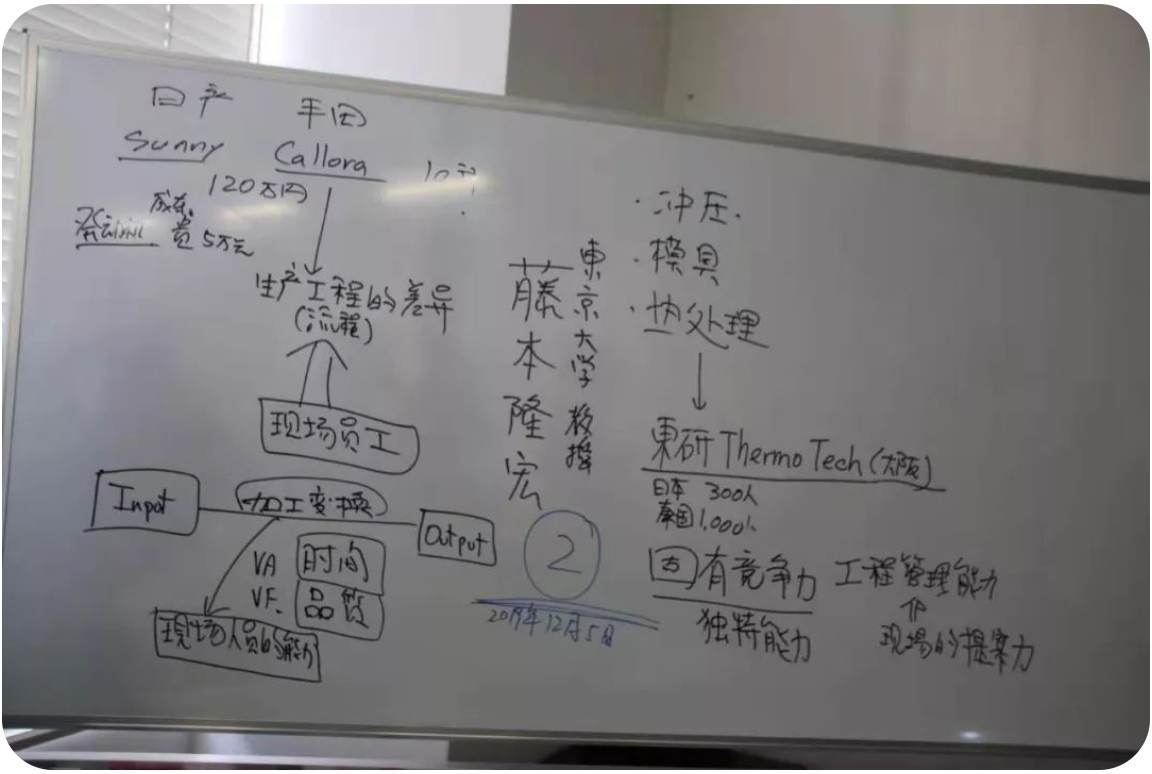 日产 丰田
Sunny Callora 10万
120万円
成本
发动机 费 5万元
生产工程的差异
(流程)
现场员工
Input 加工变换 Output
VA 时间
VF. 品質
現场人员的能力
藤本隆宏
東京大学 教授
2
2019年12月5日
·冲压.
·模具
·热处理
東研 Thermo Tech (大阪)
日本 300人
泰国 1,000人
有竞争力 工程管理能力
独特能力
现场的提案力